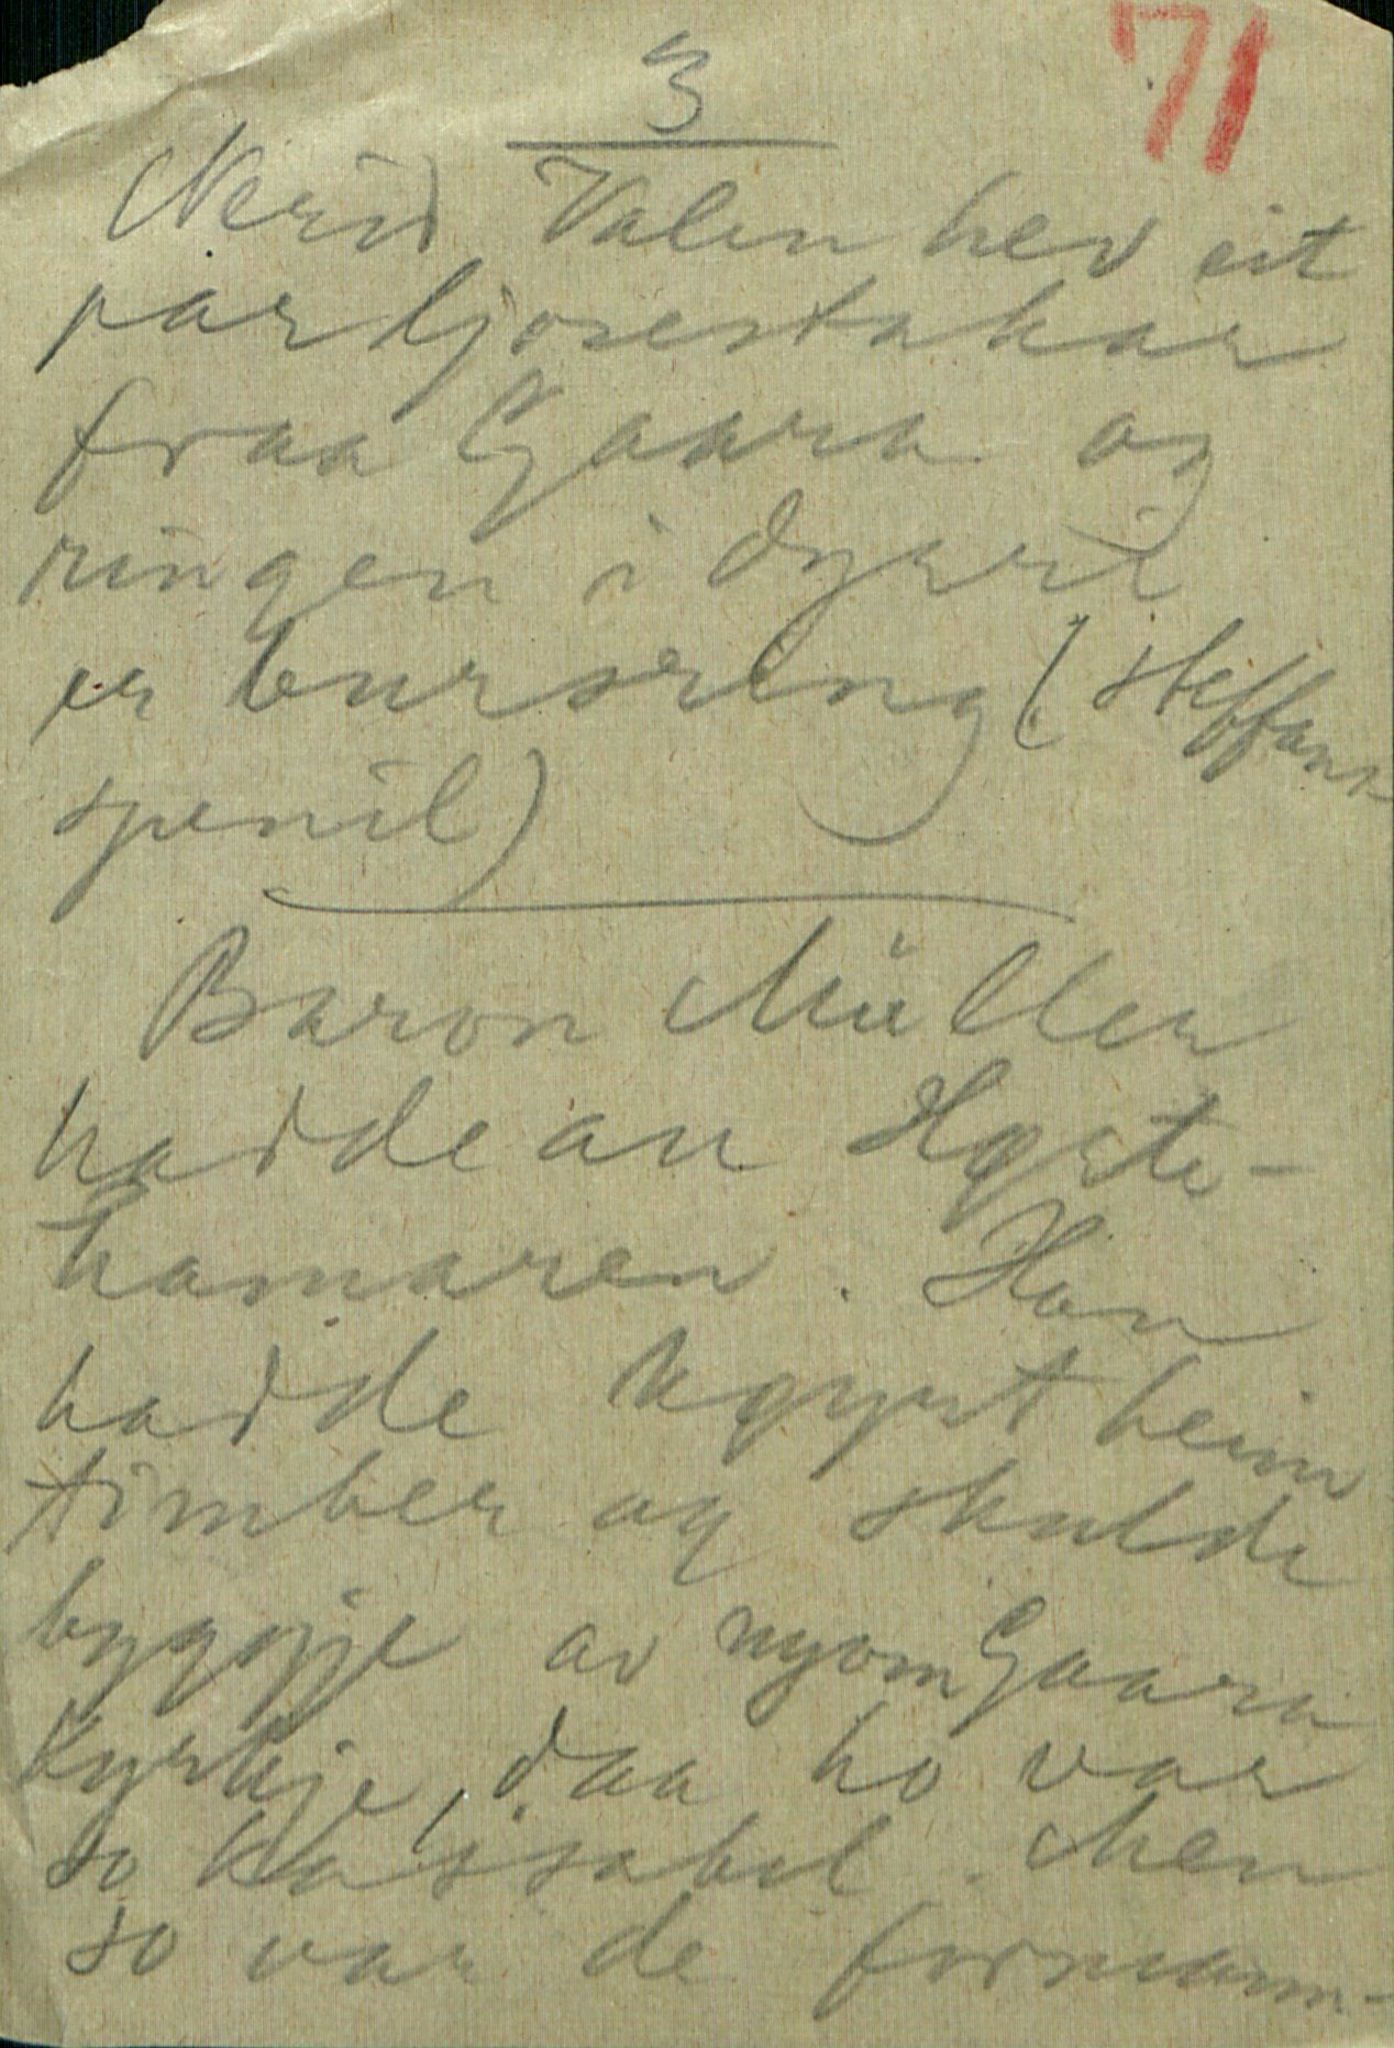 3
71
Neri Valen hev eit
par ljosestakar
fraa Gaara og
ringen i dyrri
er bursring (steffans
spenil)
Baron Müller
hadde an Hgste-
hamaren. Han
hadde kgyrt heim
timber og skulde
byggje av nyom Gaara
kyrkje, daa ho var
so kassabel. Men
so var de formann-